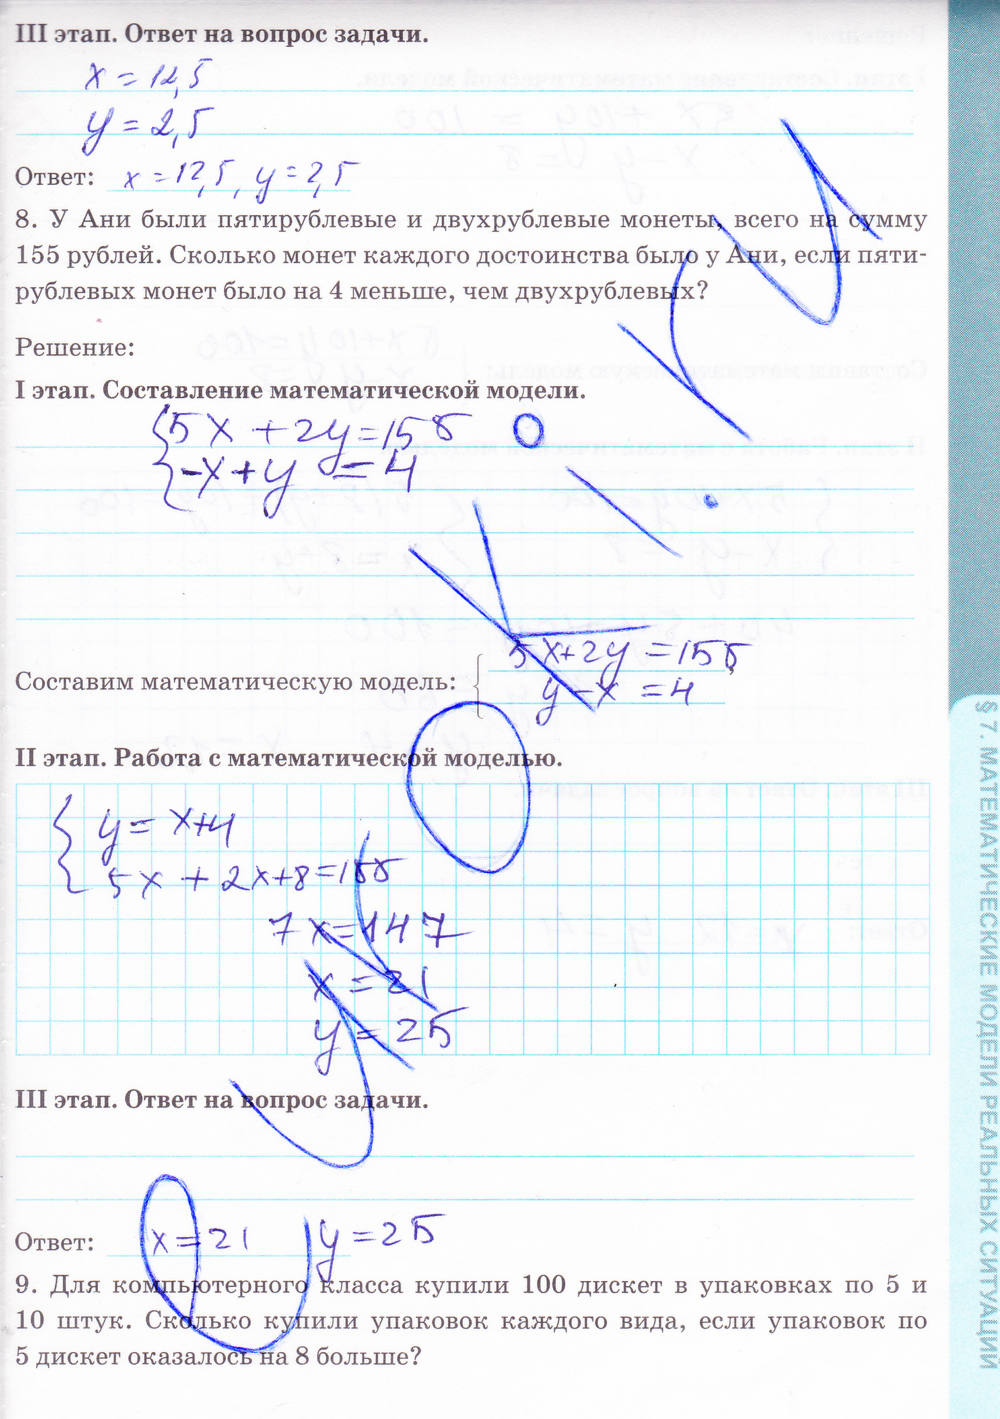 III этап. Ответ на вопрос задачи.
x = 12,5
y = 2,5
Ответ: x = 12,5, y = 2,5
8. У Ани были пятирублевые и двухрублевые монеты, всего на сумму
155 рублей. Сколько монет каждого достоинства было у Ани, если пяти-
рублевых монет было на 4 меньше, чем двухрублевых?
Решение:
I этап. Составление математической модели.
5x + 2y = 155
-x + y = 4
Составим математическую модель:
5x + 2y = 155
y - x = 4
II этап. Работа с математической моделью.
y = x + 4
5x + 2x + 8 = 155
7x = 147
x = 21
y = 25
III этап. Ответ на вопрос задачи.
Ответ: x = 21 y = 25
9. Для компьютерного класса купили 100 дискет в упаковках по 5 и
10 штук. Сколько купили упаковок каждого вида, если упаковок по
5 дискет оказалось на 8 больше?
§ 7. МАТЕМАТИЧЕСКИЕ МОДЕЛИ РЕАЛЬНЫХ СИТУАЦИИ